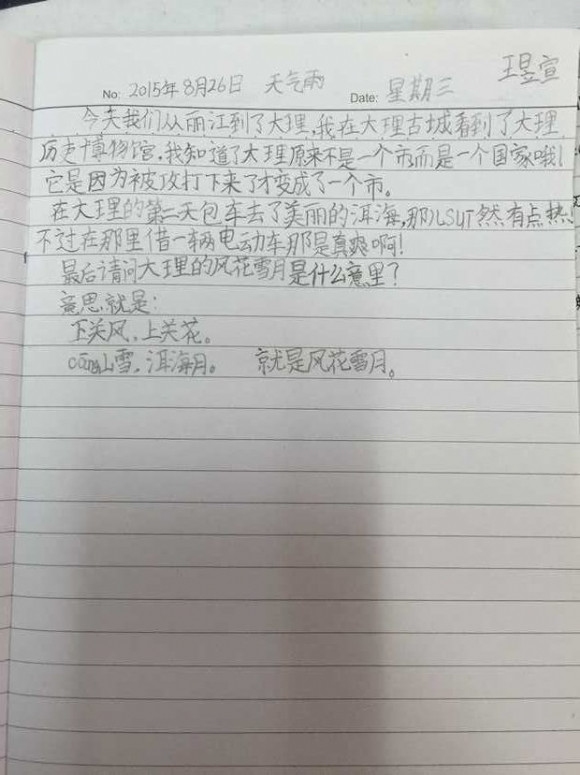 王昱宣
No: 2015年8月26日 天气雨 Date: 星期三
今天我们从丽江到了大理,我在大理古城看到了大理
历史博物馆,我知道了大理原来不是一个市而是一个国家哦!
它是因为被攻打下来了才变成了一个市。
在大理的第二天包车去了美丽的洱海,那儿 然有点热!
不过在那里借一辆电动车那是真爽啊!
最后请问大理的风花雪月是什么意里?
意思就是:
下关风,上关花。
cāng山雪,洱海月。 就是风花雪月。